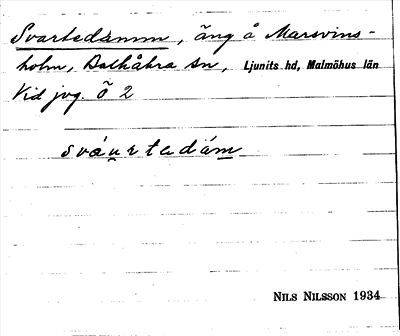 Svartedamm, äng å Marsvins-
holm, Balkåkra sn, Ljunits hd, Malmöhus län
Vid jvg. Ö 2
sváu̯rtedám
NILS NILSSON 1934